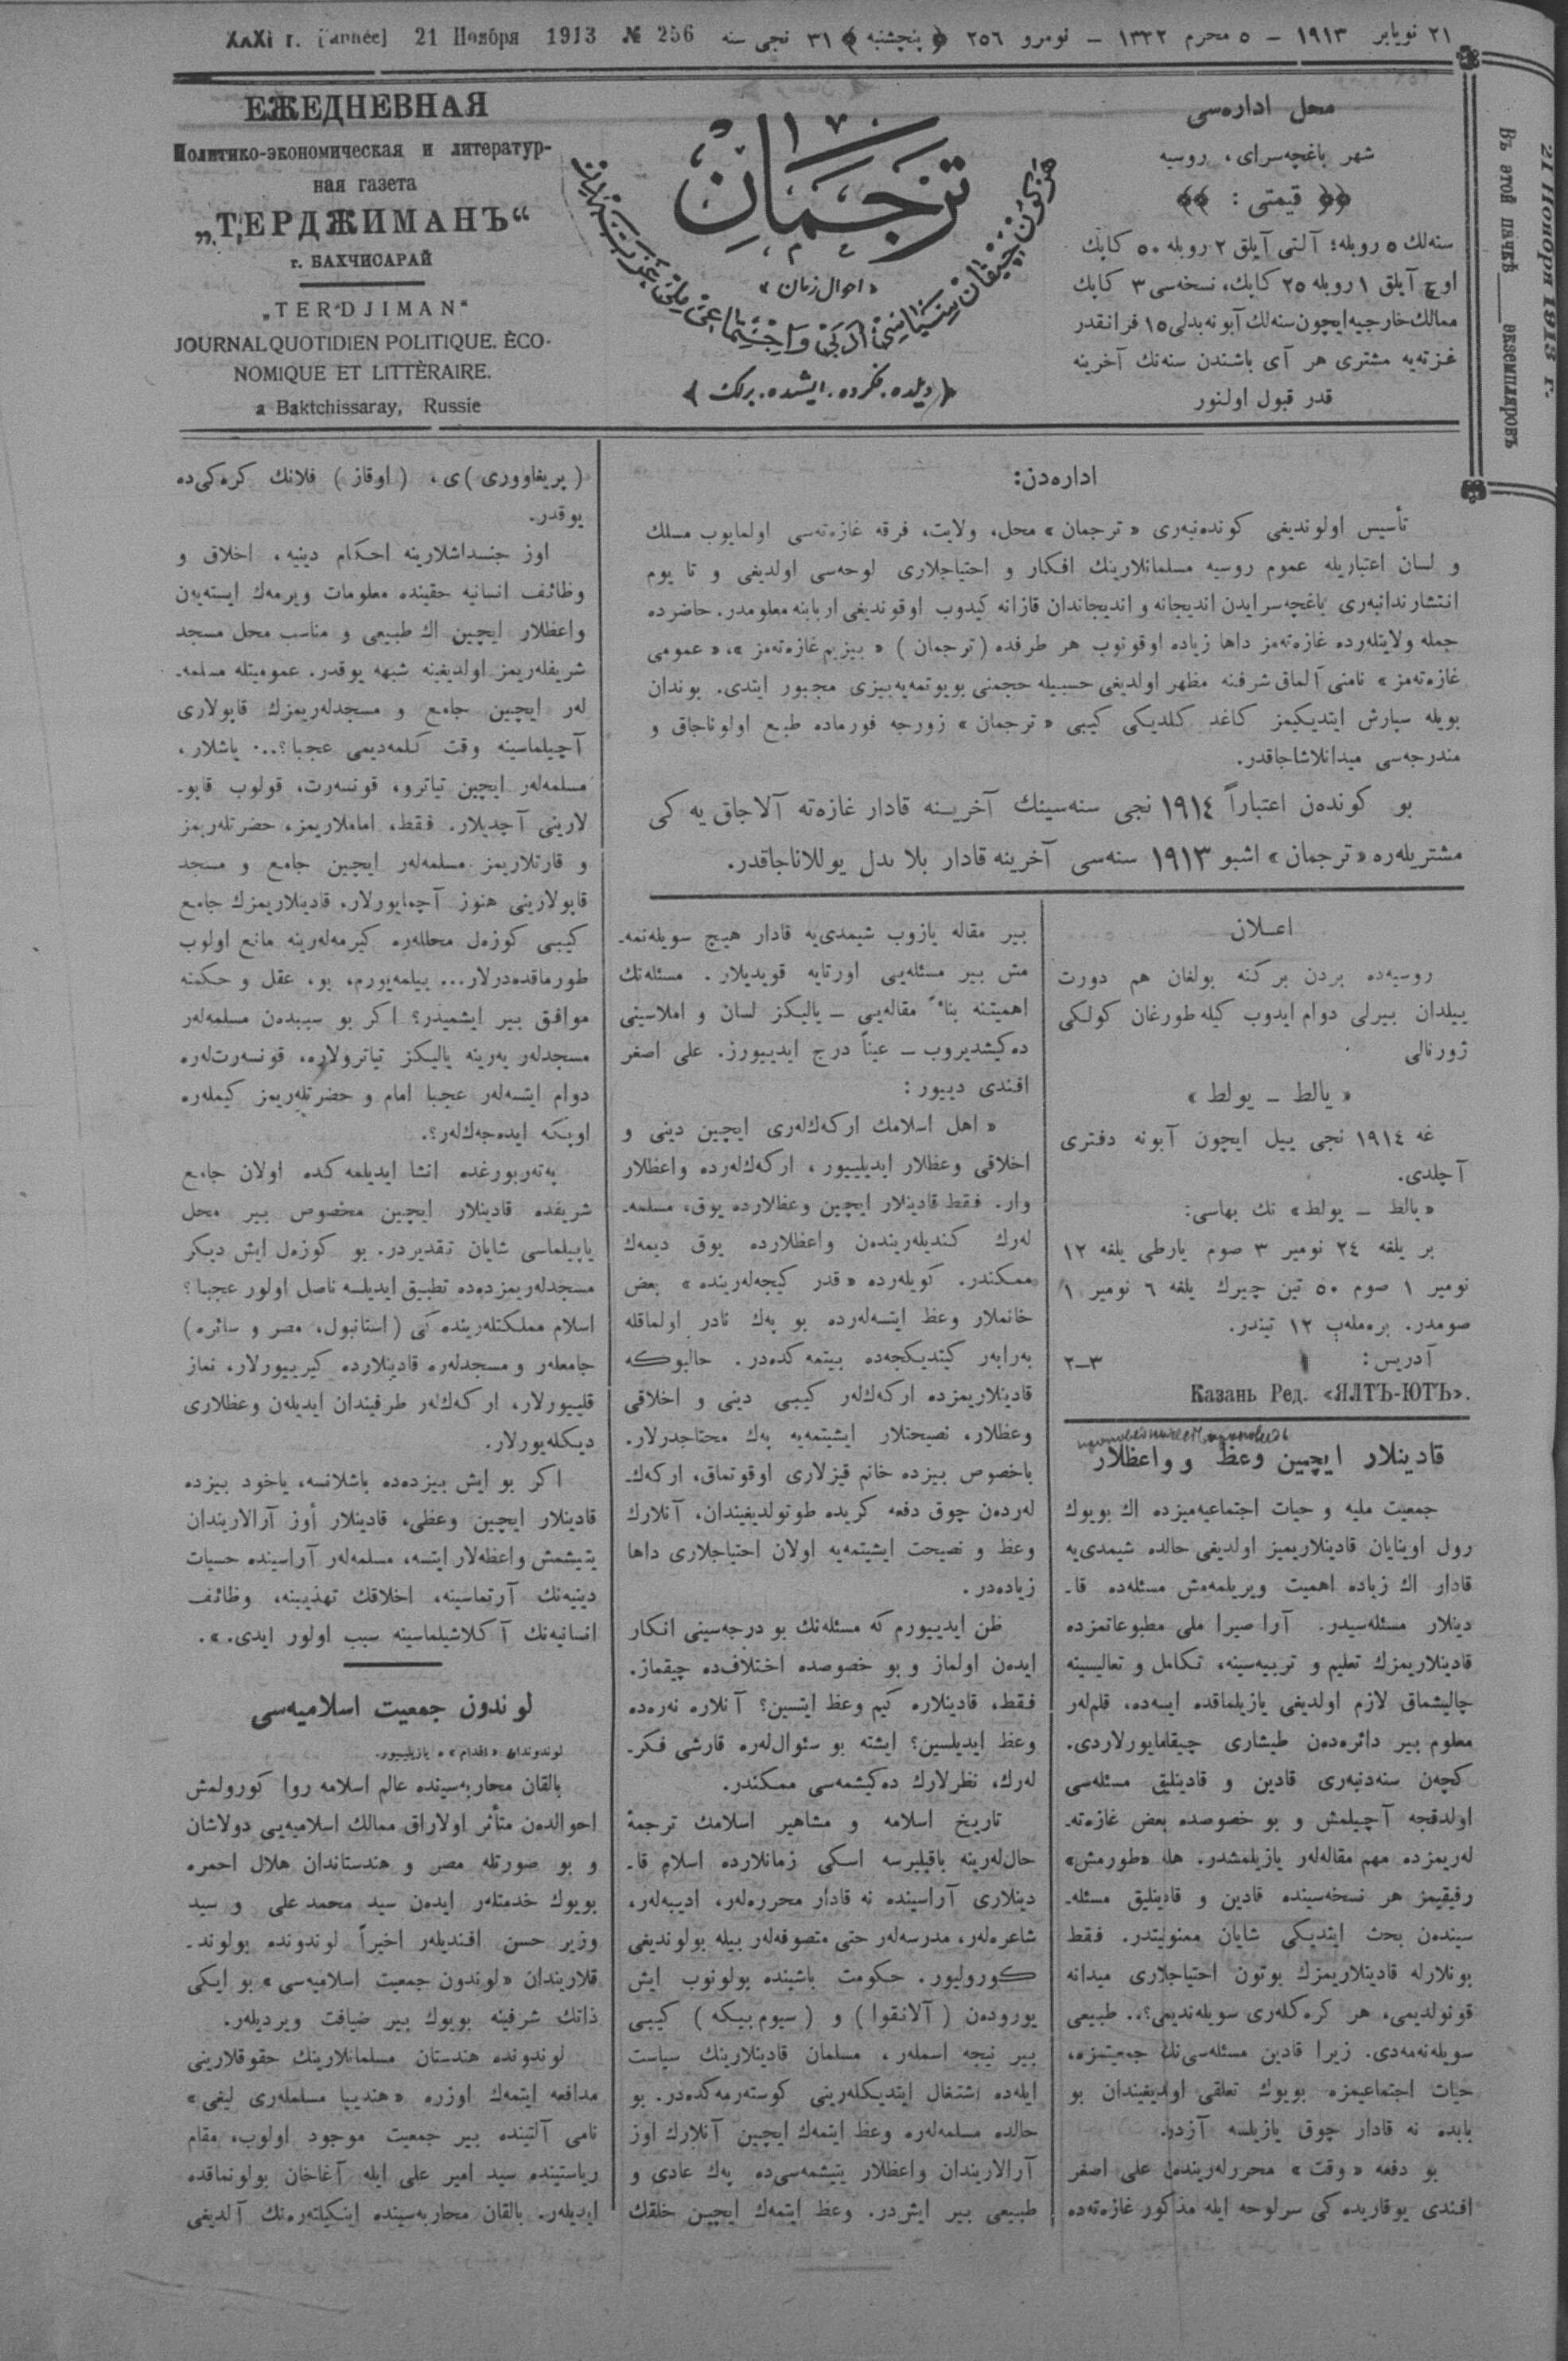 ٢١ نويابر ١٩١٣ – ٥ محرم ١٣٣٢ – نومرو ٢٥٦ ﴿ پنچشنبه ﴾ ٣١ نجی سنه
XXXI г. [année] 21 Ноября 1913 № 256
محل اداره‌سی
شهر باغچه‌سرای، روسیه
قیمتی :
سنه‌لك ٥ روبله؛ آلتی آیلق ٢ روبله ٥٠ كاپك
اوچ آیلق ١ روبله ٢٥ كاپك، نسخه‌سی ٣ كاپك
ممالك خارجیه ایچون سنه‌لك آبونه بدلی ١٥ فرانقدر
غزته‌یه مشتری هر آی باشندن سنه‌نك آخرینه
قدر قبول اولنور
ترجمان
« احوال زمان »
هر كون چیقان سیاسی، ادبی و اجتماعی ملی غزته‌در
﴿ دیلده. فكرده. ایشده. برلك ﴾
ЕЖЕДНЕВНАЯ
Политико-экономическая и литератур-
ная газета
„ТЕРДЖИМАНЪ“
г. БАХЧИСАРАЙ
„TERDJIMAN“
JOURNAL QUOTIDIEN POLITIQUE. ÈCO-
NOMIQUE ET LITTÈRAIRE.
a Baktchissaray, Russie
21 Ноября 1913 г.
Въ этой пачкѣ ___ экземпляровъ
اداره‌دن:
تأسیس اولوندیغی كونده‌نبه‌ری « ترجمان » محل، ولایت، فرقه غازه‌ته‌سی اولمایوب مسلك
و لسان اعتباریله عموم روسیه مسلمانلارینك افكار و احتیاجلاری لوحه‌سی اولدیغی و تا یوم
انتشارندانبه‌ری باغچه‌سرایدن اندیجانه و اندیجاندان قازانه كیدوب اوقوندیغی اربابنه معلومدر. حاضرده
جمله ولایتله‌رده غازه‌ته‌مز داها زیاده اوقونوب هر طرفده ( ترجمان ) « بیزیم غازه‌ته‌مز »، « عمومی
غازه‌ته‌مز » نامنی آلماق شرفنه مظهر اولدیغی حسبیله حجمنی بویوتمه‌یه بیزی مجبور ایتدی. بوندان
بویله سپارش ایتدیكیمز كاغد كلدیكی كیبی « ترجمان » زورجه فورماده طبع اولوناجاق و
مندرجه‌سی میدانلاشاجاقدر.
بو كونده‌ن اعتباراً ١٩١٤ نجی سنه‌سینك آخرینه قادار غازه‌ته آلاجاق یه كی
مشتریله‌ره « ترجمان » اشبو ١٩١٣ سنه‌سی آخرینه قادار بلا بدل یوللاناجاقدر.
اعلان
روسیه‌ده بردن بر كنه بولغان هم دورت
ییلدان بیرلی دوام ایدوب كیله طورغان كولكی
ژورنالی
« یالط – یولط »
غه ١٩١٤ نجی ییل ایچون آبونه دفتری
آچلدی.
« یالط – یولط » نك بهاسی:
بر یلغه ٢٤ نومیر ٣ صوم یارطی یلغه ١٢
نومیر ١ صوم ٥٠ تین چیرك یلغه ٦ نومیر ١
صومدر. بره‌مله‌ب ١٢ تیندر.
آدریس: ٣–٢
Казань Ред. «ЯЛТЪ-ЮТЪ».
قادینلار ایچین وعظ و واعظلار
جمعیت ملیه و حیات اجتماعیه‌میزده اك بویوك
رول اوینایان قادینلاریمیز اولدیغی حالده شیمدی‌یه
قادار اك زیاده اهمیت ویریلمه‌مش مسئله‌ده قا-
دینلار مسئله‌سیدر. آرا صیرا ملی مطبوعاتمزده
قادینلاریمزك تعلیم و تربیه‌سینه، تكامل و تعالیسینه
چالیشماق لازم اولدیغی یازیلماقده ایسه‌ده، قلم‌لر
معلوم بیر دائره‌ده‌ن طیشاری چیقامایورلاردی.
كچه‌ن سنه‌دنبه‌ری قادین و قادینلیق مسئله‌سی
اولدقجه آچیلمش و بو خصوصده بعض غازه‌ته-
له‌ریمزده مهم مقاله‌له‌ر یازیلمشدر. هله «طورمش»
رفیقیمز هر نسخه‌سینده قادین و قادینلیق مسئله-
سیندن بحث ایتدیكی شایان ممنونیتدر. فقط
بونلارله قادینلاریمزك بوتون احتیاجلاری میدانه
قونولدیمی، هر كره‌كله‌ری سویله‌ندیمی؟.. طبیعی
سویله‌نه‌مه‌دی. زیرا قادین مسئله‌سی‌نك جمعیتمزه،
حیات اجتماعیمزه بویوك تعلقی اولدیغیندان بو
بابده نه قادار چوق یازیلسه آزدر.
بو دفعه « وقت » محررله‌رینده‌ن علی اصغر
افندی یوقاریده كی سرلوحه ایله مذكور غازه‌ته‌ده
بیر مقاله یازوب شیمدی‌یه قادار هیچ سویله‌نمه-
مش بیر مسئله‌یی اورتایه قویدیلار. مسئله‌نك
اهمیتنه بناءً مقاله‌یی – یالیكز لسان و املاسینی
ده‌كیشدیروب – عیناً درج ایدییورز. علی اصغر
افندی دییور :
« اهل اسلامك اركه‌كله‌ری ایچین دینی و
اخلاقی وعظلار ایدیلییور، اركه‌كله‌رده واعظلار
وار. فقط قادینلار ایچین وعظلارده یوق، مسلمه-
له‌رك كندیله‌رینده‌ن واعظلارده یوق دیمه‌ك
ممكندر. كویله‌رده « قدر كیجه‌له‌رینده » بعض
خانملار وعظ ایتسه‌له‌رده بو په‌ك نادر اولماقله
به‌رابه‌ر كیتدیكجه‌ده بیتمه‌كده‌در. حالبوكه
قادینلاریمزده اركه‌كله‌ر كیبی دینی و اخلاقی
وعظلار، نصیحتلار ایشیتمه‌یه په‌ك محتاجدرلار.
باخصوص بیزده خانم قیزلاری اوقوتماق، اركه‌ك-
له‌رده‌ن چوق دفعه كریده طوتولدیغیندان، آنلارك
وعظ و نصیحت ایشیتمه‌یه اولان احتیاجلاری داها
زیاده‌در.
ظن ایدییورم كه مسئله‌نك بو درجه‌سینی انكار
ایده‌ن اولماز و بو خصوصده اختلاف‌ده چیقماز.
فقط، قادینلاره كیم وعظ ایتسین؟ آنلاره نه‌ره‌ده
وعظ ایدیلسین؟ ایشته بو سئوال‌له‌ره قارشی فكر-
له‌رك، نظرلارك ده‌كیشمه‌سی ممكندر.
تاریخ اسلامه و مشاهیر اسلامك ترجمهٔ
حال‌له‌رینه باقیلیرسه اسكی زمانلارده اسلام قا-
دینلاری آراسینده نه قادار محرره‌له‌ر، ادیبه‌له‌ر،
شاعره‌له‌ر، مدرسه‌له‌ر حتی متصوفه‌له‌ر بیله بولوندیغی
كورولیور. حكومت باشینده بولونوب ایش
یوروده‌ن ( آلانقوا ) و ( سیوم بیكه ) كیبی
بیر نیجه اسمله‌ر، مسلمان قادینلارینك سیاست
ایله‌ده اشتغال ایتدیكله‌رینی كوسته‌رمه‌كده‌در. بو
حالده مسلمه‌له‌ره وعظ ایتمه‌ك ایچین آنلارك اوز
آرالاریندان واعظلار یتیشمه‌سی‌ده په‌ك عادی و
طبیعی بیر ایش‌در. وعظ ایتمه‌ك ایچین خلقك
( پریغاووری ) ی، ( اوقاز ) فلانك كره‌كی‌ده
یوقدر.
اوز جنسداشلارینه احكام دینیه، اخلاق و
وظائف انسانیه حقینده معلومات ویرمه‌ك ایسته‌یه‌ن
واعظلار ایچین اك طبیعی و مناسب محل مسجد
شریفله‌ریمز اولدیغینه شبهه یوقدر. عمومیتله مسلمه-
له‌ر ایچین جامع و مسجدله‌ریمزك قاپولاری
آچیلماسینه وقت كلمه‌دیمی عجبا؟... یاشلار،
مسلمه‌له‌ر ایچین تیاترو، قونسه‌رت، قولوب قاپو-
لارینی آچدیلار. فقط، اماملاریمز، حضرتله‌ریمز
و قارتلاریمز مسلمه‌له‌ر ایچین جامع و مسجد
قاپولارینی هنوز آچمایورلار. قادینلاریمزك جامع
كیبی كوزه‌ل محلله‌ره كیرمه‌له‌رینه مانع اولوب
طورماقده‌درلار... بیلمه‌یورم، بو، عقل و حكمته
موافق بیر ایشمیدر؟ اكر بو سببده‌ن مسلمه‌له‌ر
مسجدله‌ر یه‌رینه یالیكز تیاترولاره، قونسه‌رت‌له‌ره
دوام ایتسه‌له‌ر عجبا امام و حضرتله‌ریمز كیمله‌ره
اوپكه ایده‌جه‌كله‌ر؟.
په‌ته‌ربورغده انشا ایدیلمه‌كده اولان جامع
شریفده قادینلار ایچین مخصوص بیر محل
یاپیلماسی شایان تقدیردر. بو كوزه‌ل ایش دیكر
مسجدله‌ریمزده‌ده تطبیق ایدیلسه ناصل اولور عجبا؟
اسلام مملكتله‌رینده كی ( استانبول، مصر و سائره )
جامعله‌ر و مسجدله‌ره قادینلارده كیرییورلار، نماز
قلییورلار، اركه‌كله‌ر طرفیندان ایدیله‌ن وعظلاری
دیكله‌یورلار.
اكر بو ایش بیزده‌ده باشلانسه، یاخود بیزده
قادینلار ایچین وعظی، قادینلار أوز آرالاریندان
یتیشمش واعظه‌لار ایتسه، مسلمه‌له‌ر آراسینده حسیات
دینیه‌نك آرتماسینه، اخلاقك تهذیبنه، وظائف
انسانیه‌نك آكلاشیلماسینه سبب اولور ایدی. ».
لوندون جمعیت اسلامیه‌سی
لوندوندان « اقدام » ه یازیلییور.
بالقان محاربه‌سینده عالم اسلامه روا كورولمش
احوالده‌ن متأثر اولاراق ممالك اسلامیه‌یی دولاشان
و بو صورتله مصر و هندستاندان هلال احمره
بویوك خدمتله‌ر ایده‌ن سید محمد علی و سید
وزیر حسن افندیله‌ر اخیراً لوندونده بولوند-
قلاریندان « لوندون جمعیت اسلامیه‌سی » بو ایكی
ذاتك شرفینه بویوك بیر ضیافت ویردیله‌ر.
لوندونده هندستان مسلمانلارینك حقوقلارینی
مدافعه ایتمه‌ك اوزره « هندییا مسلمله‌ری لیغی »
نامی آلتینده بیر جمعیت موجود اولوب، مقام
ریاستینده سید امیر علی ایله آغاخان بولونماقده
ایدیله‌ر. بالقان محاربه‌سینده اینكیلته‌ره‌نك آلدیغی